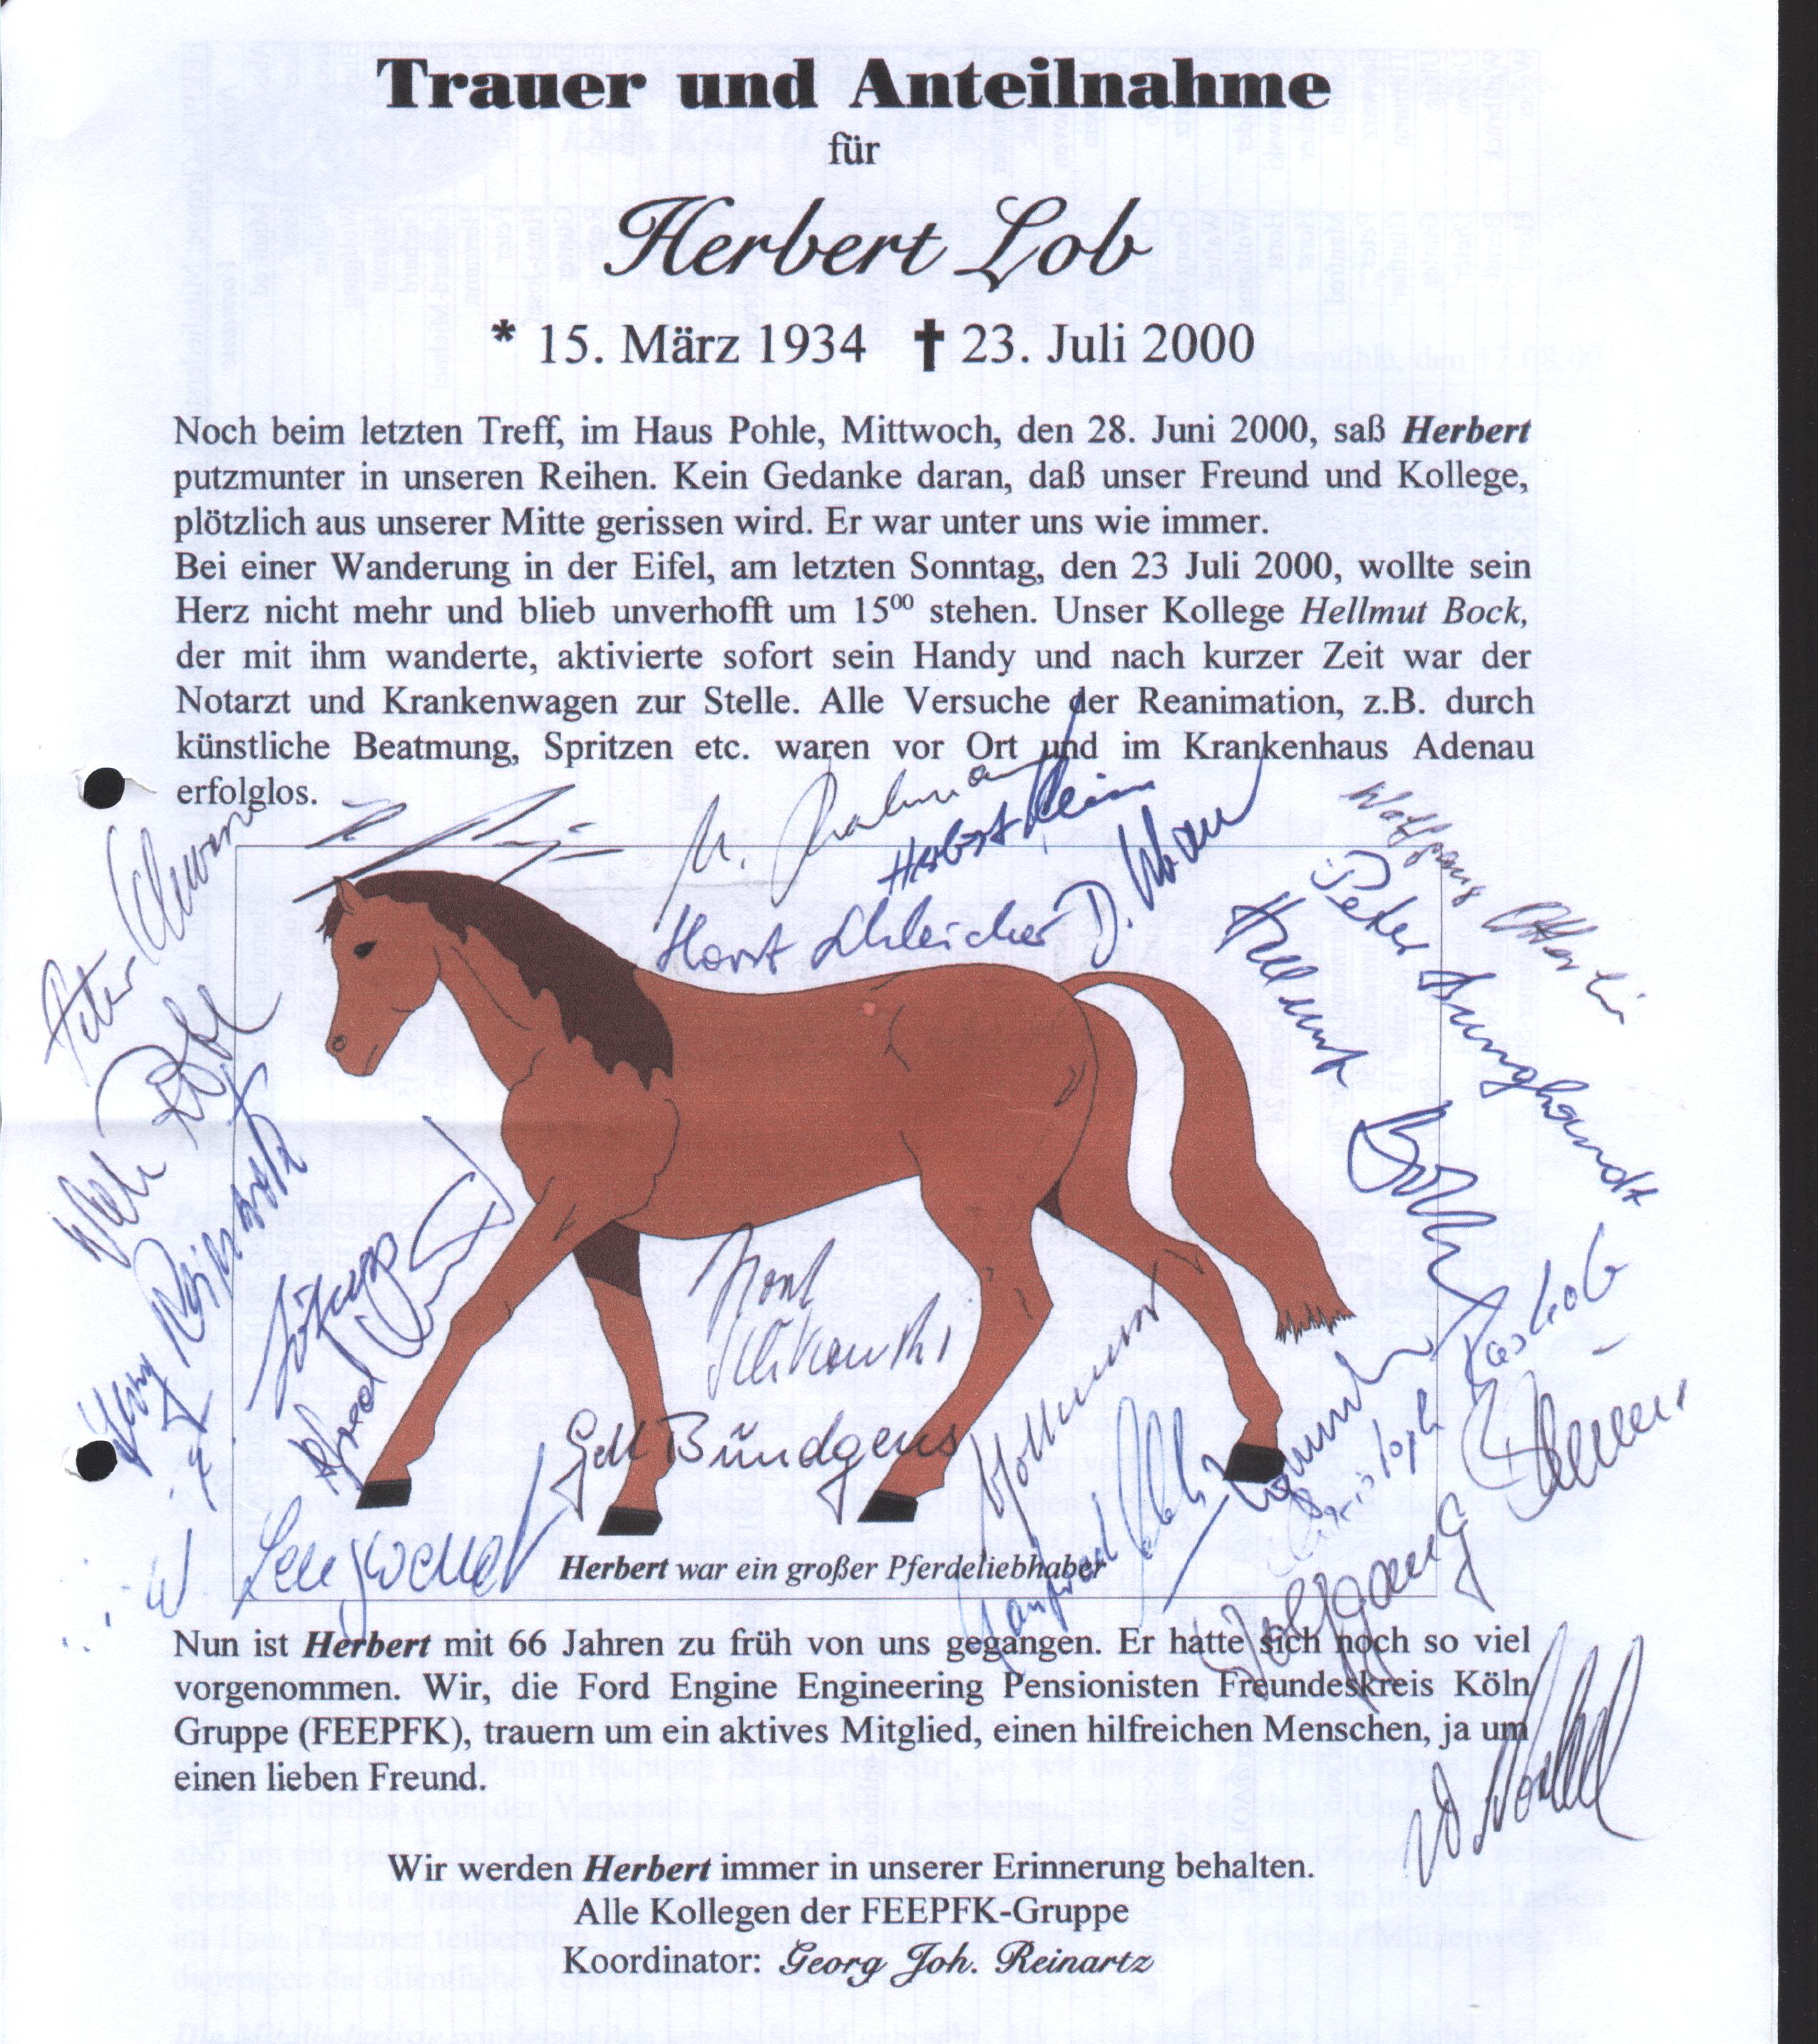 Trauer und Anteilnahme
für
Herbert Lob
* 15. März 1934 † 23. Juli 2000
Noch beim letzten Treff, im Haus Pohle, Mittwoch, den 28. Juni 2000, saß Herbert
putzmunter in unseren Reihen. Kein Gedanke daran, daß unser Freund und Kollege,
plötzlich aus unserer Mitte gerissen wird. Er war unter uns wie immer.
Bei einer Wanderung in der Eifel, am letzten Sonntag, den 23 Juli 2000, wollte sein
Herz nicht mehr und blieb unverhofft um 15⁰⁰ stehen. Unser Kollege Hellmut Bock,
der mit ihm wanderte, aktivierte sofort sein Handy und nach kurzer Zeit war der
Notarzt und Krankenwagen zur Stelle. Alle Versuche der Reanimation, z.B. durch
künstliche Beatmung, Spritzen etc. waren vor Ort und im Krankenhaus Adenau
erfolglos.
Herbert Klein
Horst Schleicher
Wolfgang
Peter Junghandt
Hellmut Bock
Peter
Georg Reinartz
Alfred
Horst
Bündgens
Manfred
Christoph
Wolfgang
Herbert war ein großer Pferdeliebhaber
Nun ist Herbert mit 66 Jahren zu früh von uns gegangen. Er hatte sich noch so viel
vorgenommen. Wir, die Ford Engine Engineering Pensionisten Freundeskreis Köln
Gruppe (FEEPFK), trauern um ein aktives Mitglied, einen hilfreichen Menschen, ja um
einen lieben Freund.
Wir werden Herbert immer in unserer Erinnerung behalten.
Alle Kollegen der FEEPFK-Gruppe
Koordinator: Georg Joh. Reinartz